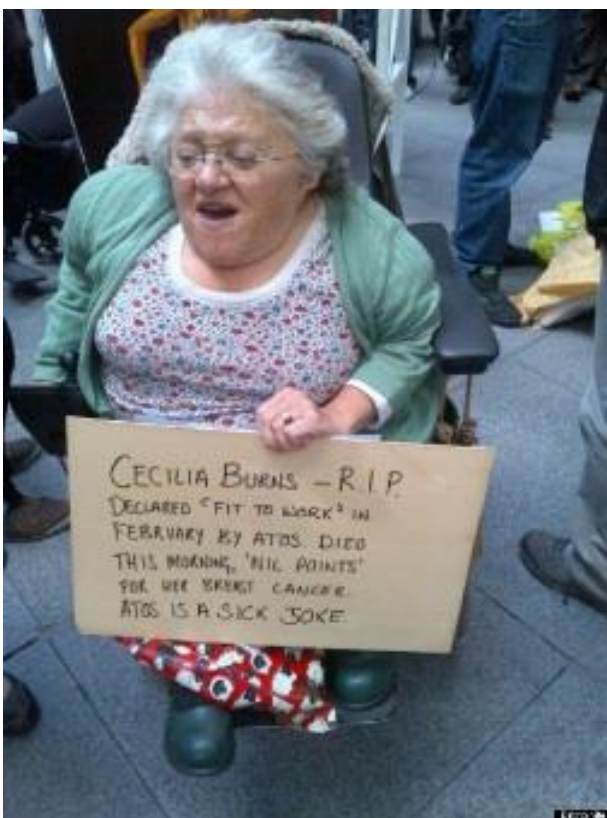 CECILIA BURNS – R.I.P.
DECLARED "FIT TO WORK" IN
FEBRUARY BY ATOS. DIED
THIS MORNING, 'NIL POINTS'
FOR HER BREAST CANCER.
ATOS IS A SICK JOKE.